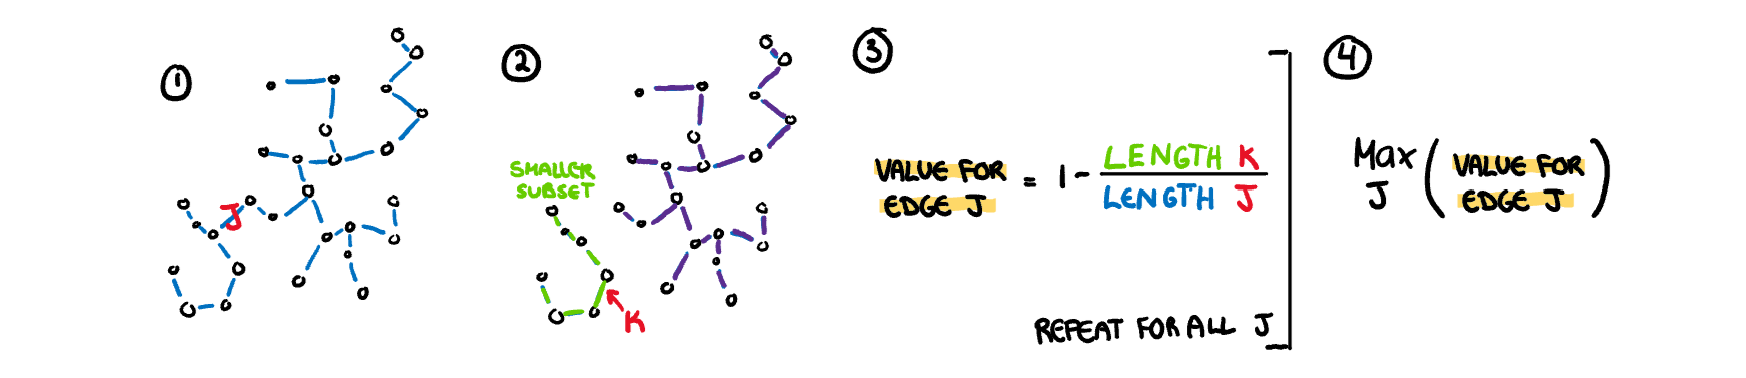 1
J
2
SMALLER
SUBSET
K
3
VALUE FOR
EDGE J
= 1 -
LENGTH K
LENGTH J
REPEAT FOR ALL J
4
Max
J
(
VALUE FOR
EDGE J
)